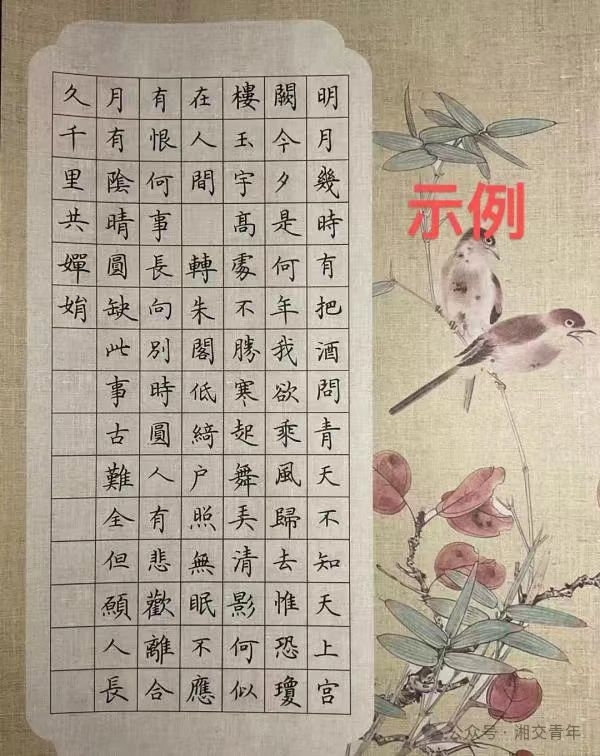 明月幾時有把酒問青天不知天上宮
闕今夕是何年我欲乘風歸去惟恐瓊
樓玉宇髙處不勝寒起舞弄清影何似
在人間 轉朱閣低綺户照無眠不應
有恨何事長向別時圓人有悲歡離合
月有陰晴圓缺此事古難全但願人長
久千里共嬋娟
示例
公众号·湘交青年